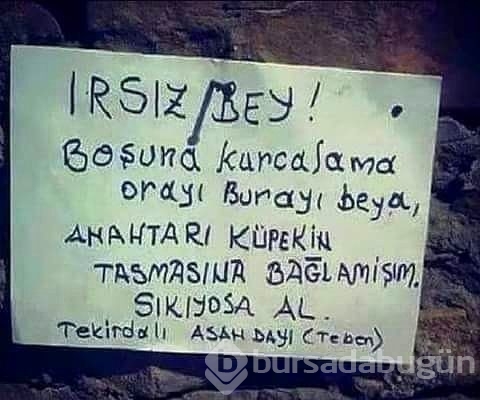 IRSIZ BEY!
Boşuna kurcalama
orayı Burayı beya,
ANAHTARI KÜPEKİN
TASMASINA BAĞLAMIŞIM.
SIKIYOSA AL.
Tekirdalı ASAN DAYI (Teben)
bursadabugün